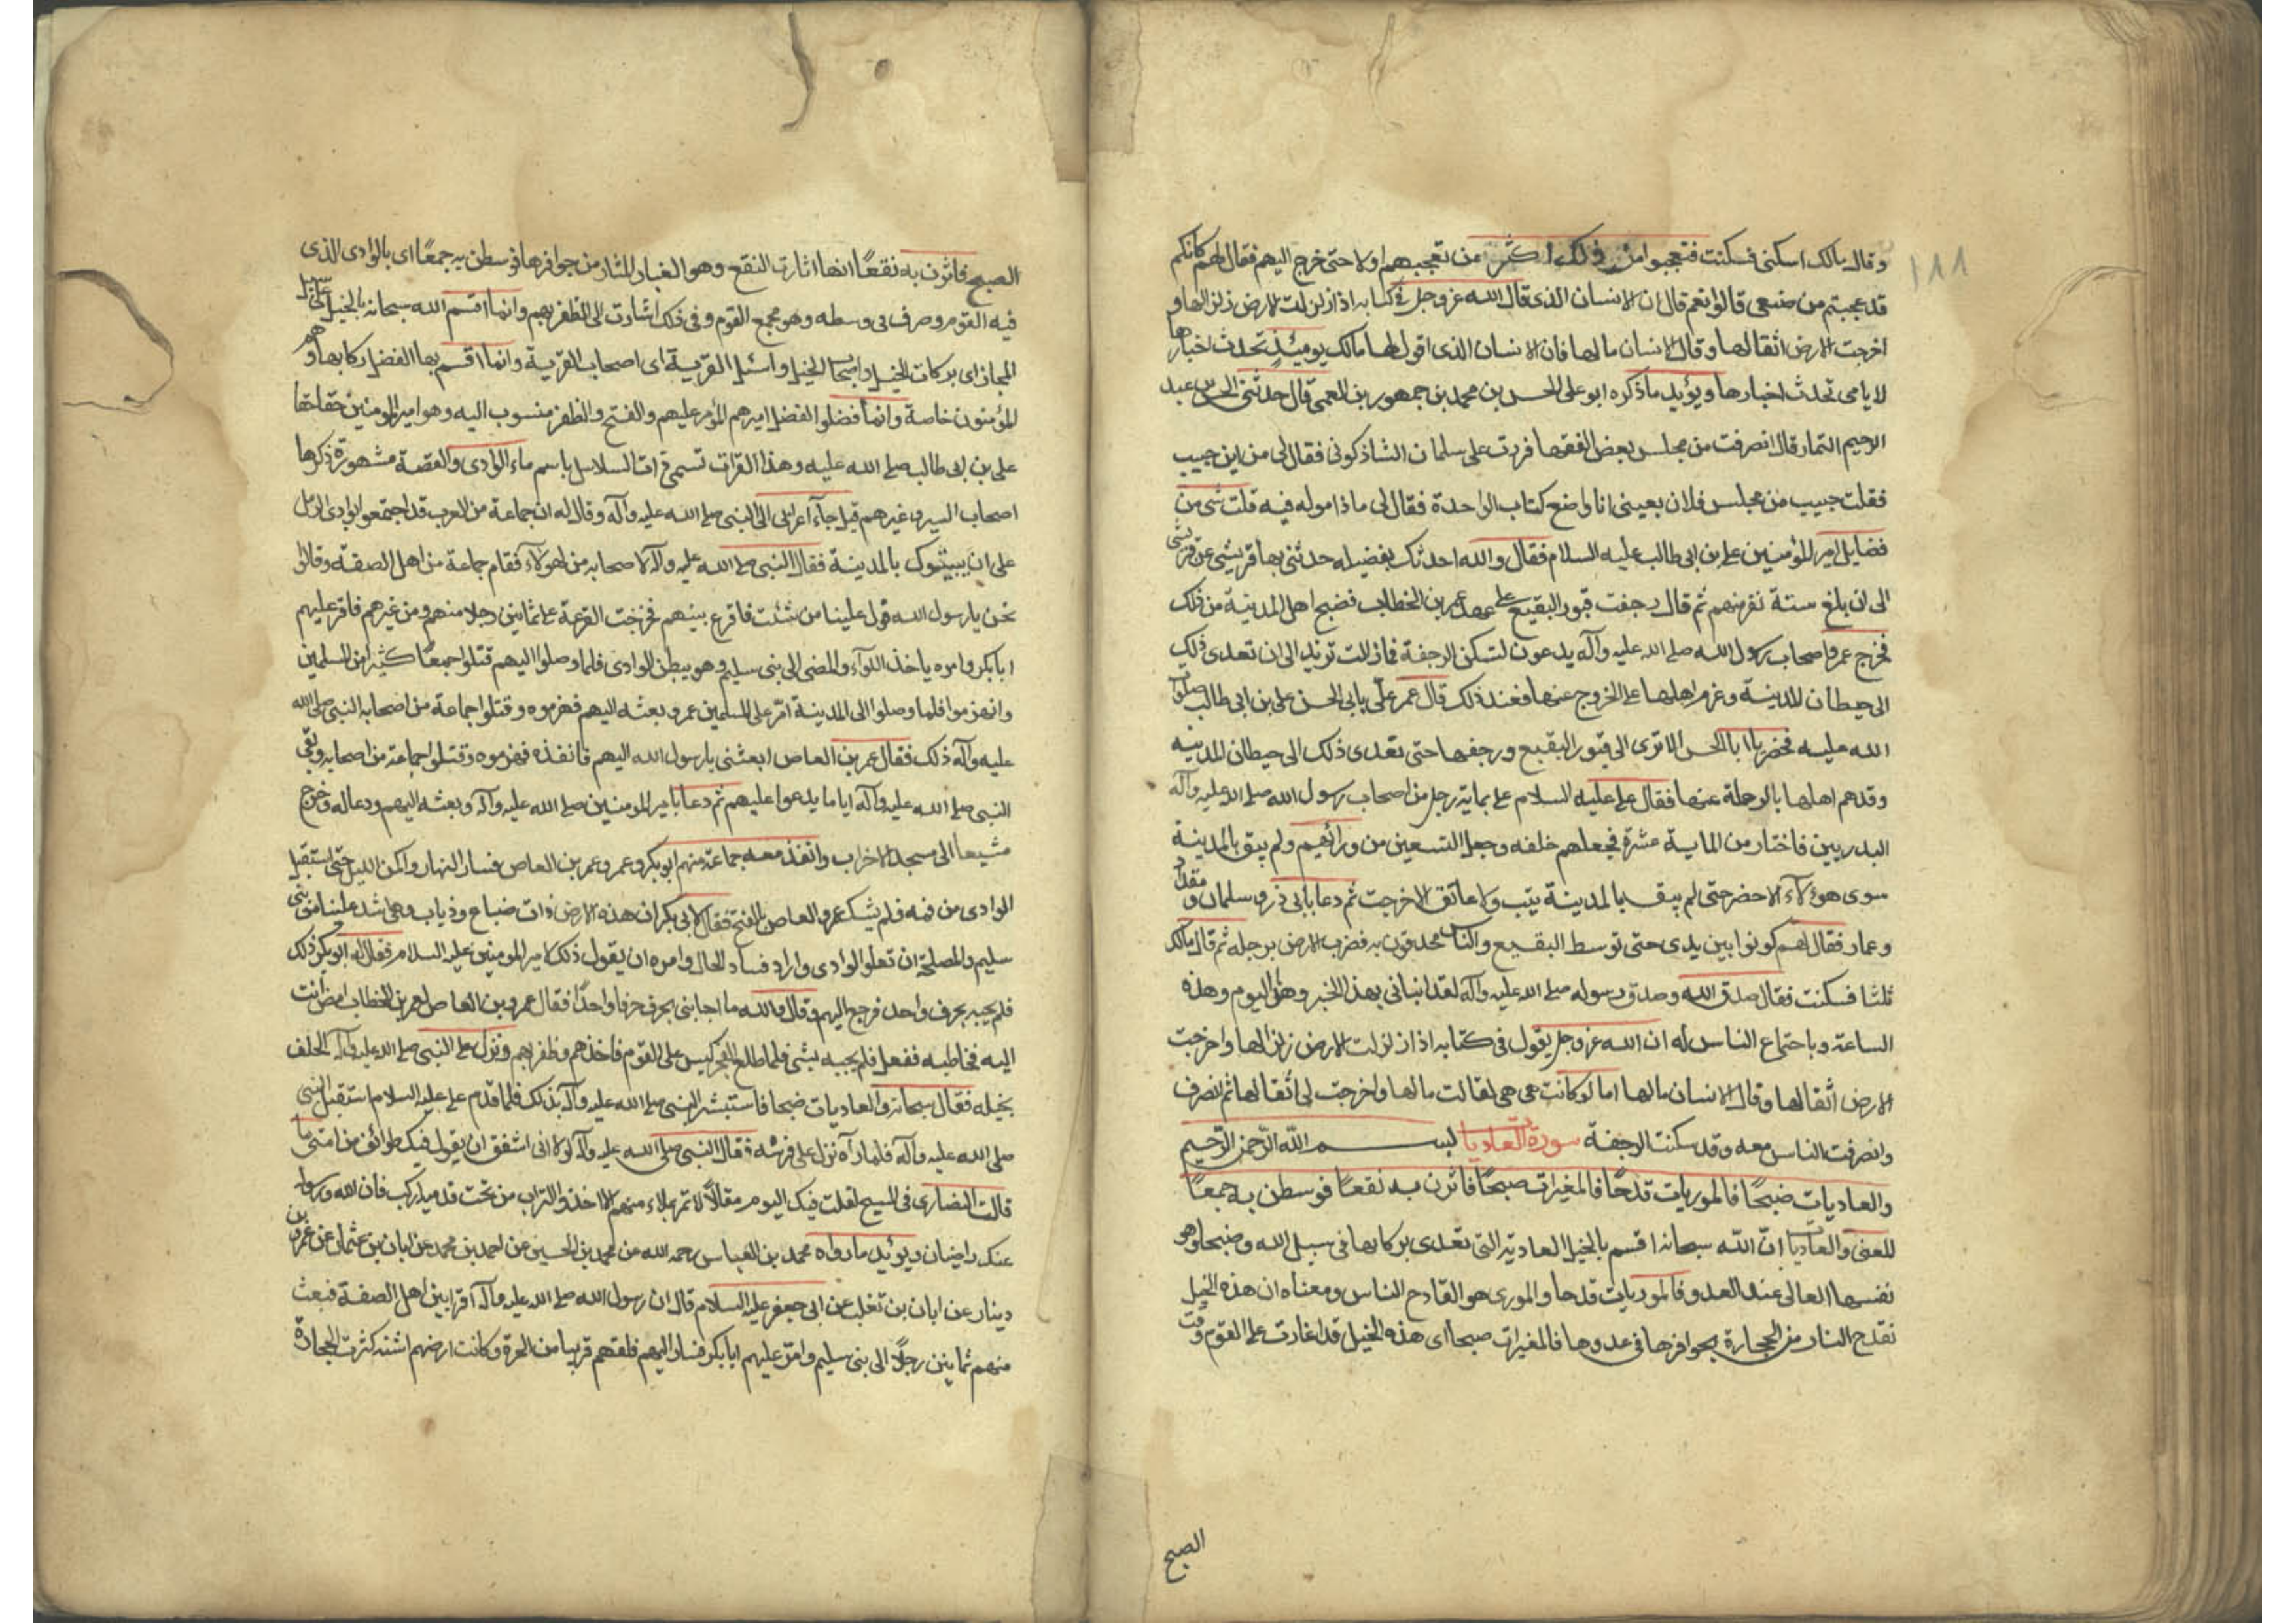 ١٨٨
وقال مالك اسكنى فسكنت فتعجبوا من ذلك اكثر من تعجبهم اولا حتى خرج اليهم فقال لهم كانكم
قد عجبتم من صنعى قالوا نعم قال ان الانسان الذى قال الله عز وجل فى كتابه اذا زلزلت الارض زلزالها و
اخرجت الارض اثقالها وقال الانسان مالها فان الانسان الذى اقول لها مالك يومئذ تحدث اخبارها
لايامى تحدث اخبارها ويؤيد ما ذكره ابو على الحسن بن محمد بن جمهور بن العمى قال حدثنى الحسن بن عبد
الرحيم التمار قال انصرفت من مجلس بعض الفقها فررت على سلمان الشاذكونى فقال لى من اين جبيب
فقلت جبيب من مجلس فلان بعينى انا واضع كتاب الواحدة فقال لى ماذا موله فيه قلت شى من
فضايل امير المؤمنين على بن ابى طالب عليه السلام فقال والله احدثك بفضيله حدثنى بها قريشى عن قريشى
الى ان بلغ ستة نفر منهم ثم قال رجفت قبور البقيع على عهد عمر بن الخطاب فضج اهل المدينة من ذلك
فخرج عمر واصحاب رسول الله صلى الله عليه وآله يدعون لتسكن الرجفة فمازالت تزيد الى ان تعدى ذلك
الى حيطان المدينة وعزم اهلها على الخروج عنها فعند ذلك قال عمر علّى بابى الحسن على بن ابى طالب صلوات
الله عليه فحضر يا ابا الحسن الا ترى الى قبور البقيع ورجفها حتى تعدى ذلك الى حيطان المدينه
وقدهم اهلها بالرحلة عنها فقال على عليه السلام على بماية رجل من اصحاب رسول الله صلى الله عليه وآله
البدريين فاختار من الماية عشرة فجعلهم خلفه وجعل التسعين من ورائهم ولم يبق بالمدينة
سوى هؤلآء الا حضر حتى لم يبق بالمدينة يتب ولا عاتق الا خرجت ثم دعا بابى ذر وسلمان ومقداد
وعمار فقال لهم كونوا بين يدى حتى توسط البقيع والناس محدقون به فضرب الارض برجله ثم قال مالك
ثلثا فسكنت فقال صدق الله وصدق رسوله صلى الله عليه وآله لقد انبانى بهذا الخبر وهذا اليوم وهذه
الساعة وباحتماع الناس له ان الله عز وجل يقول فى كتابه اذا زلزلت الارض زلزالها واخرجت
الارض اثقالها وقال الانسان مالها اما لو كانت هى هى لقالت مالها ولخرجت لى اثقالها ثم انصرف
وانصرفت الناس معه وقد سكنت الرجفة سورة العاديات بسم الله الرحمن الرحيم
والعاديات ضبحًا فالموريات قدحًا فالمغيرات صبحًا فاثرن به نقعًا فوسطن به جمعًا
المعنى والعاديات انّ الله سبحانه اقسم بالخيل العاديه التى تعدى بركابها فى سبيل الله وضبحا وهو
نفسها العالى عند العدو فالموريات قدحا والمورى هو القادح الناس ومعناه ان هذه الخيل
تقدح النار من الحجارة بحوافرها فى عدوها فالمغيرات صبحا اى هذه الخيل قد اغارت على القوم وقت
الصبح
الصبح فاثرن به نقعًا انها اثارت النقع وهو الغبار المثار من حوافرها فوسطن به جمعًا اى بالوادى الذى
فيه القوم وصرف بى وسطه وهو مجمع القوم وفى ذلك اشارت الى الظفر بهم وانما اقسم الله سبحانه بالخيل على سبيل
المجاز اى بركات الخيل واصحاب الخيل واسئل القرية اى اصحاب القرية وانما اقسم بها الفضل ركابها وهم
المؤمنون خاصة وانما فضلوا الفضل اميرهم المؤمر عليهم والفتح والظفر منسوب اليه وهو امير المومنين حقا حقا
على بن ابى طالب صلى الله عليه وهذا القرات تسمى ذات السلاسل باسم ماء الوادى والقصة مشهورة ذكرها
اصحاب السير وغيرهم قيل جآء اعرابى الى النبى صلى الله عليه وآله وقال له ان جماعة من العرب قد اجتمعوا بوادى الرمل
على ان يبيتوك بالمدينة فقال النبى صلى الله عليه وآله لاصحابه من لهولآء فقام جماعة من اهل الصفه وقالوا
نحن يا رسول الله قول علينا من شئت فاقرع بينهم فخرجت القرعة على ثمانين رجلا منهم ومن غيرهم فاقر عليهم
ابا بكر وامره ياخذ اللوآء والمضى الى بنى سليم وهو ببطن الوادى فلما وصلوا اليهم قتلوا جمعًا كثيرا من المسلمين
وانهزموا فلما وصلوا الى المدينة امّر على المسلمين عمر وبعثه اليهم فهزموه وقتلوا جماعة من اصحابه النبى صلى الله
عليه وآله ذلك فقال عمر بن العاص ابعثنى يا رسول الله اليهم فانفذه فهزموه وقتلوا جماعة من اصحابه وبقى
النبى صلى الله عليه وآله اياما يدعوا عليهم ثم دعا بامير المومنين صلى الله عليه وآله وبعثه اليهم ودعا له وخرج
مشيعا الى مسجد الاحزاب وانفذ معه جماعة منهم ابو بكر وعمر وعمر بن العاص فسار النهار واكمن الليل حتى استقبل
الوادى من فمه فلم يشك عمرو العاص بالفتح فقال لابى بكر ان هذه الارض ذات ضباع وذياب وهى اشد علينا من بنى
سليم والمصلحة ان تعلوا الوادى واراد فساد الحال وامره ان يقول ذلك لامير المومنين عليه السلام فقال له ابو بكر ذلك
فلم يجبه بحرف واحد فرجع اليهم وقال والله ما اجابنى بحرف حرفا واحدًا فقال عمرو بن العاص لعمر بن الخطاب امض انت
اليه فخاطبه ففعل فلم يجبه بشى فلما طلع الفجر كبس على القوم فاخذهم وظفر بهم ونزل على النبى صلى الله عليه وآله الحلف
بخيله فقال سبحانه والعاديات ضبحا فاستبشر النبى صلى الله عليه وآله بذلك فلما قدم على عليه السلام استقبل النبى
صلى الله عليه وآله فلما رآه نزل على فرشه فقال النبى صلى الله عليه وآله لولا انى اشفق ان يقول فيك طوائف من امتى ما
قالت النصارى فى المسيح لقلت فيك اليوم مقالاً لا تمر بملاء منهم الا اخذوا التراب من تحت قدميك اركب فان الله ورسوله
عنك راضيان ويؤيد ما رواه محمد بن العباس رحمه الله من محمد بن الحسين عن احمد بن محمد عن ابان بن عثمان عن عمر بن
دينار عن ابان بن تغلب عن ابى جعفر عليه السلام قال ان رسول الله صلى الله عليه وآله اقرا بين اهل الصفة فبعث
منهم ثمانين رجلاً الى بنى سليم وامّر عليهم ابا بكر فسار اليهم فلقهم قريبا من الحرة وكانت ارضهم اشنه كثرت الحجارة